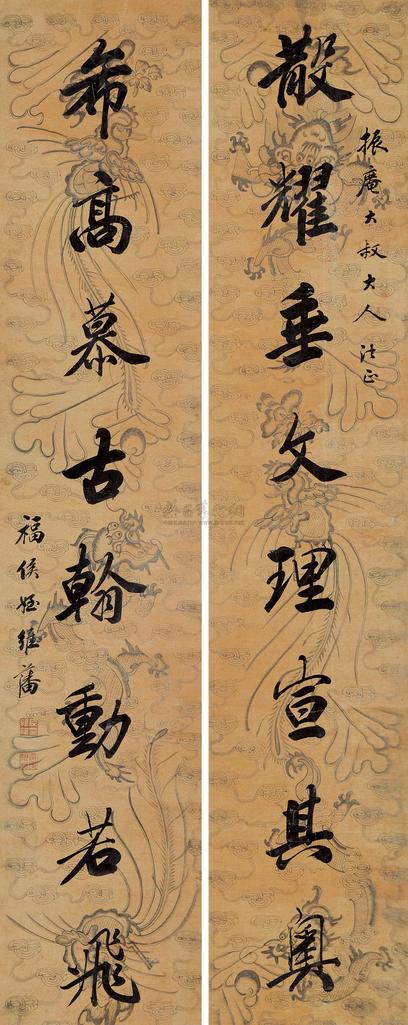 散耀垂文理宣其奧
振廣大叔大人法正
希高慕古翰動若飛
福侯姪維藩